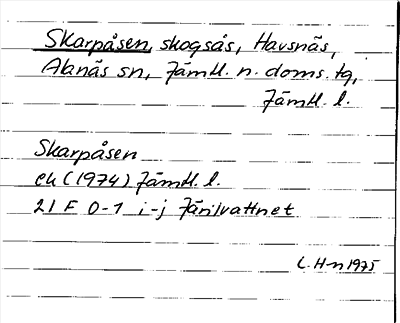 Skarpåsen, skogsås, Havsnäs,
Alanäs sn, Jämtl. n. doms. tg,
Jämtl. l.
Skarpåsen
ek (1974) Jämtl. l.
21 F 0-1 i-j Järilvattnet
L. H-n 1975